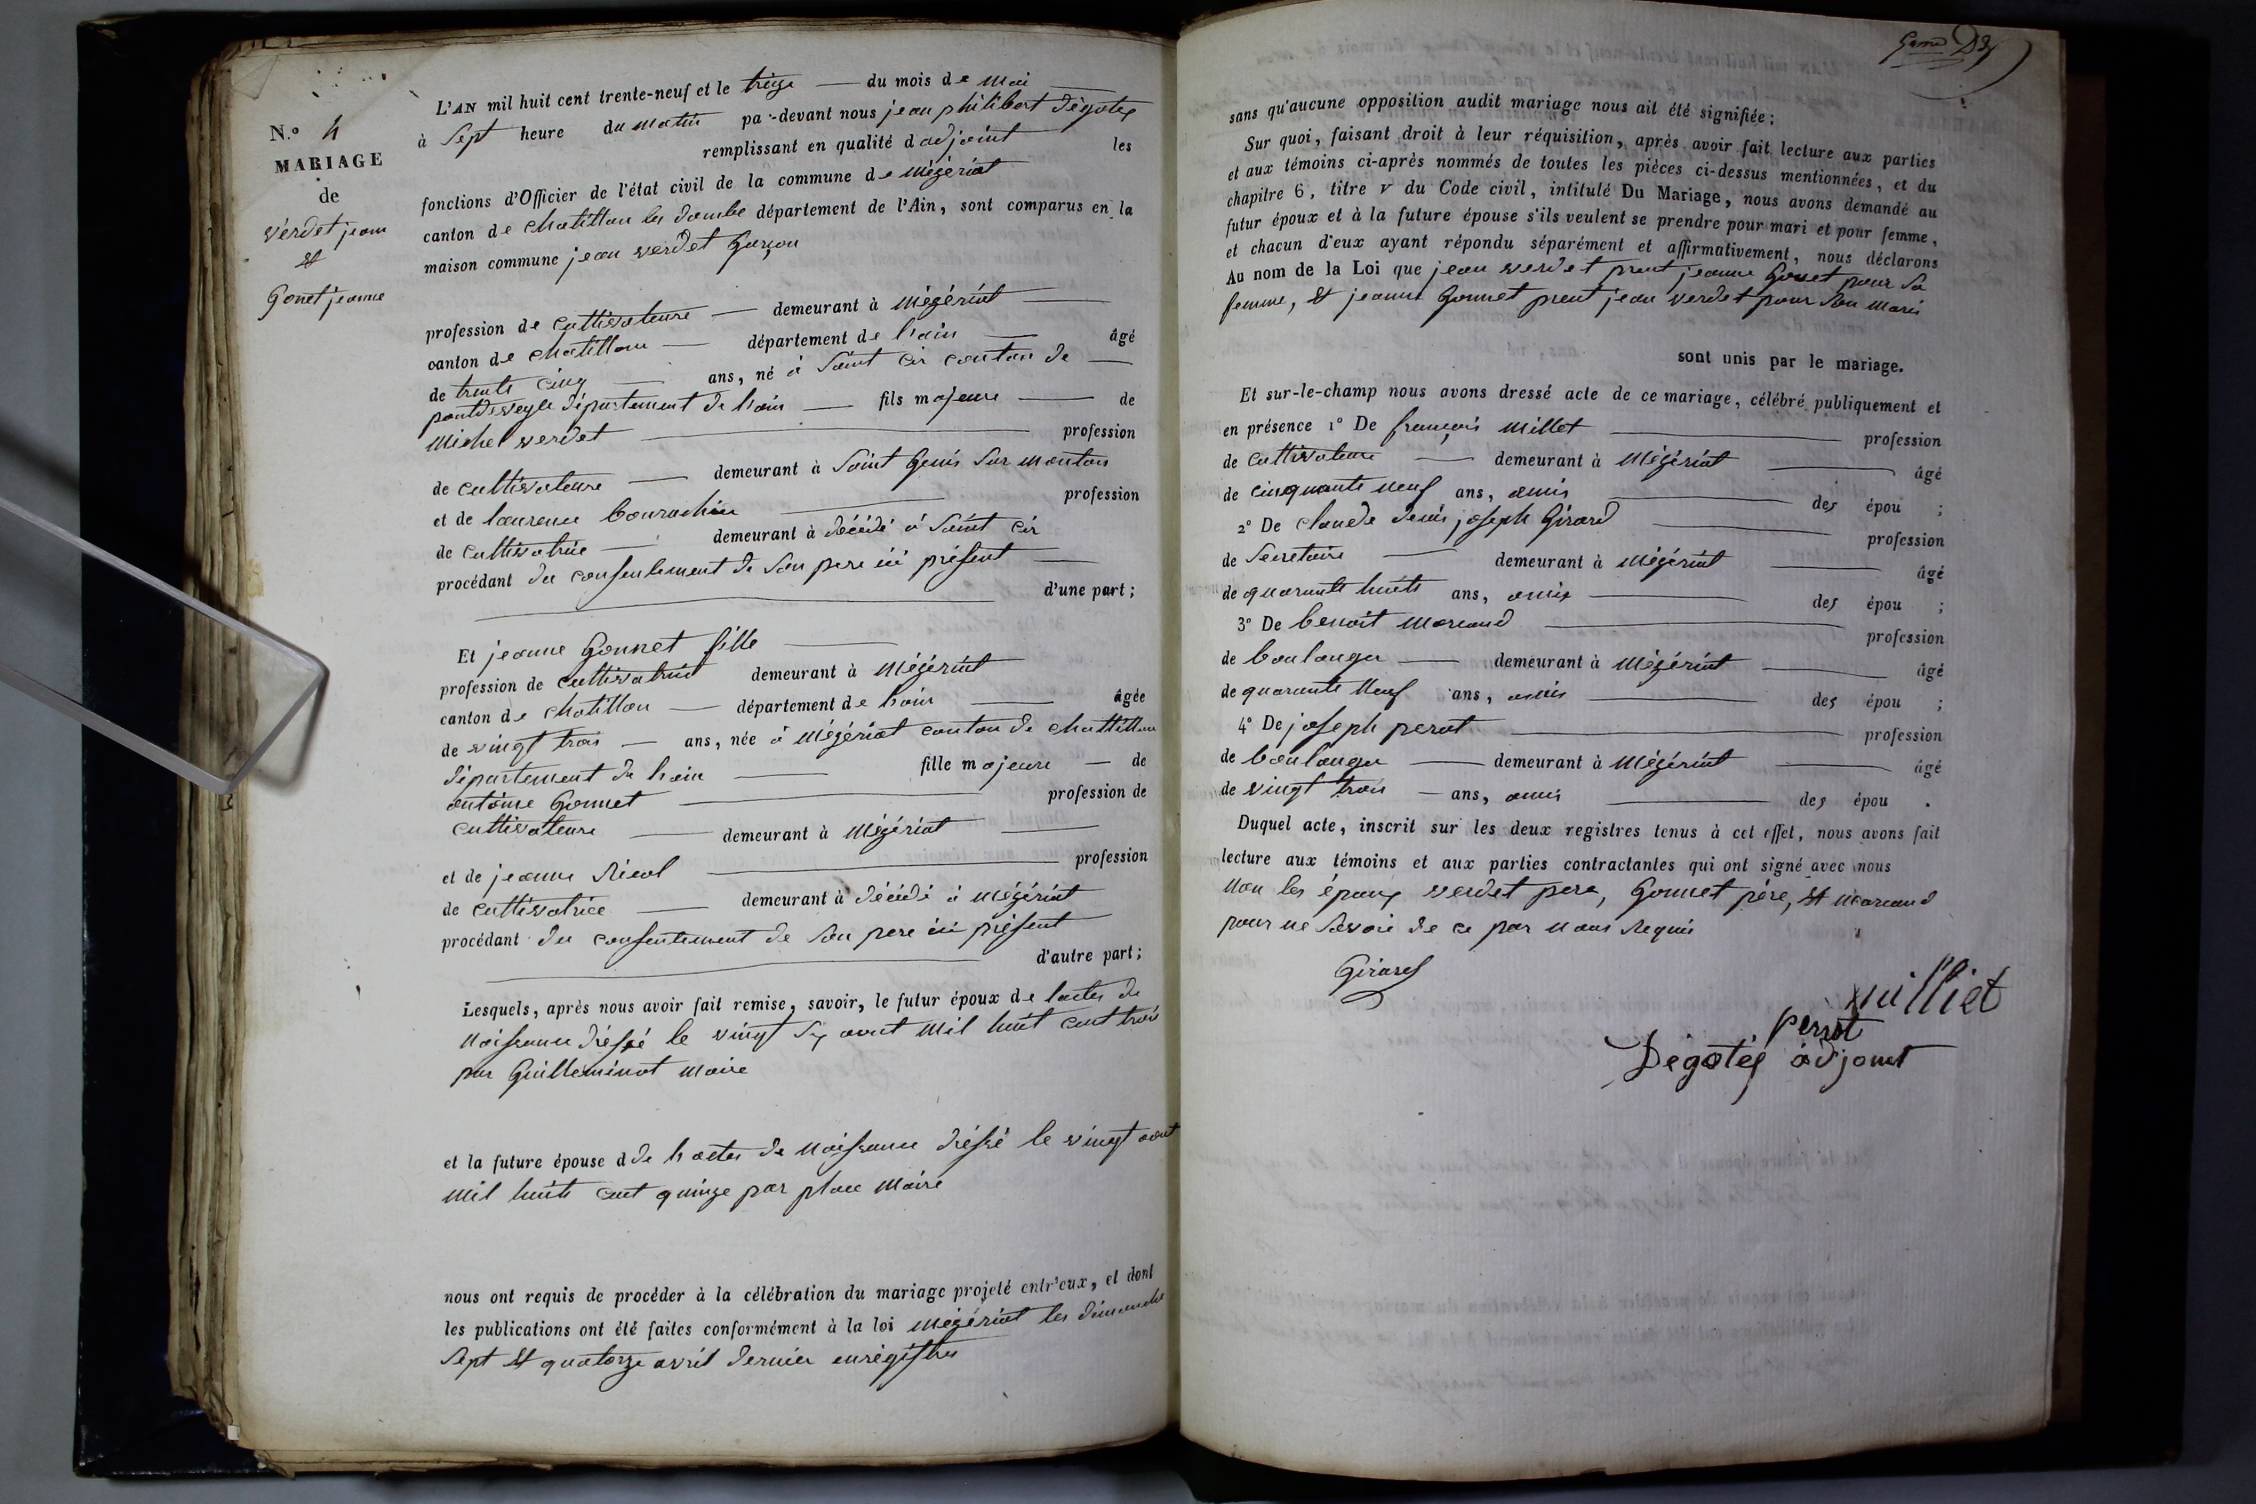 N.° 4
MARIAGE
de
verdet jean
et
Gonet jeanne
L'AN mil huit cent trente-neuf et le treize du mois de mai
à sept heure du matin pa-devant nous jean philibert Dégotex
remplissant en qualité d adjoint les
fonctions d'Officier de l'état civil de la commune de mézériat
canton de chatillon les dombe département de l'Ain, sont comparus en la
maison commune jean verdet Garçon
profession de cultivateure demeurant à mézériat
canton de chatillon département de lain âgé
de trente cinq ans, né à saint cir canton de
pontdeveyle département de lain fils majeure de
michel verdet profession
de cultivateure demeurant à saint Genis sur monton
et de laurence bourachin profession
de cultivatrice demeurant à décédé à saint cir
procédant du consentement de son pere ici présent
d'une part ;
Et jeanne Gonnet fille
profession de cultivatrice demeurant à mézériat
canton de chatillon département de lain âgée
de vingt trois ans, née à mézériat canton de chatillon
département de lain fille majeure de
antoine Gonnet profession de
cultivateure demeurant à mézériat
et de jeanne profession
de cultivatrice demeurant à décédé à mézériat
procédant du consentement de son pere ici présent
d'autre part ;
Lesquels, après nous avoir fait remise, savoir, le futur époux de lactes de
naissance dréssé le vingt six aout mil huit cent trois
par Guilleminot maire
et la future épouse d de lactes de naissance dréssé le vingt aout
mil huit cent quinze par place maire
nous ont requis de procéder à la célébration du mariage projeté entr'eux, et dont
les publications ont été faites conformément à la loi mézériat les dimanche
sept et quatorze avril dernier enrégistres
sans qu'aucune opposition audit mariage nous ait été signifiée ;
Sur quoi, faisant droit à leur réquisition, après avoir fait lecture aux parties
et aux témoins ci-après nommés de toutes les pièces ci-dessus mentionnées, et du
chapitre 6, titre v du Code civil, intitulé Du Mariage, nous avons demandé au
futur époux et à la future épouse s'ils veulent se prendre pour mari et pour femme,
et chacun d'eux ayant répondu séparément et affirmativement, nous déclarons
Au nom de la Loi que jean verdet prent jeanne Gonet pour sa
femme, et jeanne Gonnet prent jean verdet pour son maris
sont unis par le mariage.
Et sur-le-champ nous avons dressé acte de ce mariage, célébré publiquement et
en présence 1° De françois millet profession
de cultivateure demeurant à mézériat âgé
de cinquante neuf ans, amis des épou ;
2° De claude denis joseph Girard profession
de secretaire demeurant à mézériat âgé
de quarante huits ans, amis des épou ;
3° De benoit moreaud profession
de boulanger demeurant à mézériat âgé
de quarante neuf ans, amis des épou ;
4° De joseph perot profession
de boulanger demeurant à mézériat âgé
de vingt trois ans, amis des épou .
Duquel acte, inscrit sur les deux registres tenus à cet effet, nous avons fait
lecture aux témoins et aux parties contractantes qui ont signé avec nous
non les époux verdet pere, Gonnet père, et moreaud
pour ne savoir de ce par nous requis
Girard
milliet
perrot
Dégotex adjoint